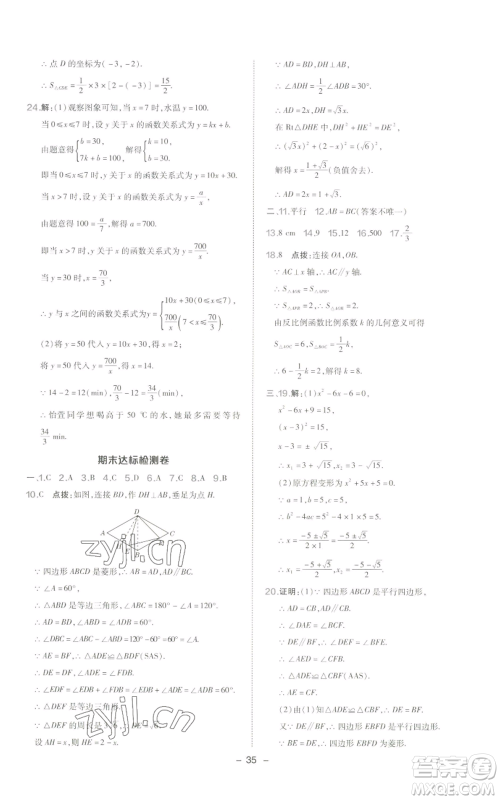 ∴ 点 D 的坐标为(-3,-2).
∴ S△CDE = 1/2 ×3×[2-(-3)] = 15/2.
24.解:(1)观察图象可知,当 x=7 时,水温 y=100.
当 0≤x≤7 时,设 y 关于 x 的函数关系式为 y=kx+b.
由题意得{b=30, 7k+b=100, 解得{k=10, b=30.
即当 0≤x≤7 时,y 关于 x 的函数关系式为 y=10x+30.
当 x>7 时,设 y 关于 x 的函数关系式为 y=a/x.
由题意得 100=a/7,解得 a=700.
即当 x>7 时,y 关于 x 的函数关系式为 y=700/x.
当 y=30 时,x=70/3.
∴ y 与 x 之间的函数关系式为{10x+30(0≤x≤7), 700/x(7<x≤70/3).
(2)将 y=50 代入 y=10x+30,得 x=2.
将 y=50 代入 y=700/x,得 x=14.
∵ 14-2=12(min),70/3-12=34/3(min),
∴ 怡萱同学想喝高于 50 ℃的水,她最多需要等待
34/3 min.
期末达标检测卷
一、1.C 2.A 3.C 4.C 5.D 6.C 7.C 8.B 9.B
10.C 点拨:如图,连接 BD,作 DH⊥AB,垂足为点 H.
∵ 四边形 ABCD 是菱形,∴ AB=AD,AD∥BC.
∵ ∠A=60°,
∴ △ABD 是等边三角形,∠ABC=180°-∠A=120°.
∴ AD=BD,∠ABD=∠A=∠ADB=60°.
∴ ∠DBC=∠ABC-∠ABD=120°-60°=60°.
∵ AE=BF,∴ △ADE≌△BDF(SAS).
∴ DE=DF,∠ADE=∠FDB.
∴ ∠EDF=∠EDB+∠FDB=∠EDB+∠ADE=∠ADB=60°.
∴ △DEF 是等边三角形.
∵ △DEF 的周长是 3√6,∴ DE=√6.
设 AH=x,则 HE=2-x.
∵ AD=BD,DH⊥AB,
∴ ∠ADH=1/2∠ADB=30°.
∴ AD=2x,DH=√3x.
在 Rt△DHE 中,DH²+HE²=DE²,
∴ (√3x)²+(2-x)²=(√6)²,
解得 x=(1+√3)/2(负值舍去).
∴ AD=2x=1+√3.
二、11.平行 12.AB=BC(答案不唯一)
13.8 cm 14.9 15.12 16.500 17.2/3
18.8 点拨:连接 OA,OB.
∵ AC⊥x 轴,∴ AC∥y 轴.
∴ S△AOC=S△APC,S△BOC=S△BPC.
由反比例函数比例系数 k 的几何意义可得
S△AOC=6,S△BOC=1/2k.
∴ 6-1/2k=2,解得 k=8.
三、19.解:(1)x²-6x-6=0,
x²-6x+9=6+9,
(x-3)²=15,
x-3=±√15,
∴ x₁=3+√15,x₂=3-√15.
(2)原方程变形为 x²+5x+5=0.
∵ a=1,b=5,c=5,
∴ b²-4ac=5²-4×1×5=5.
∴ x=(-5±√5)/(2×1)=(-5±√5)/2.
∴ x₁=(-5+√5)/2,x₂=(-5-√5)/2.
20.证明:(1)∵ 四边形 ABCD 是平行四边形,
∴ AD=CB,AD∥CB.
∴ ∠DAE=∠BCF.
∵ DE∥BF,∴ ∠DEF=∠BFE.
∴ ∠AED=∠CFB.
∴ △ADE≌△CBF(AAS).
∴ AE=CF.
(2)由(1)知△ADE≌△CBF,则 DE=BF.
又∵ DE∥BF,
∴ 四边形 EBFD 是平行四边形.
- 35 -
zyjl.cn
zyjl.cn
答案圈
MXQE.COM